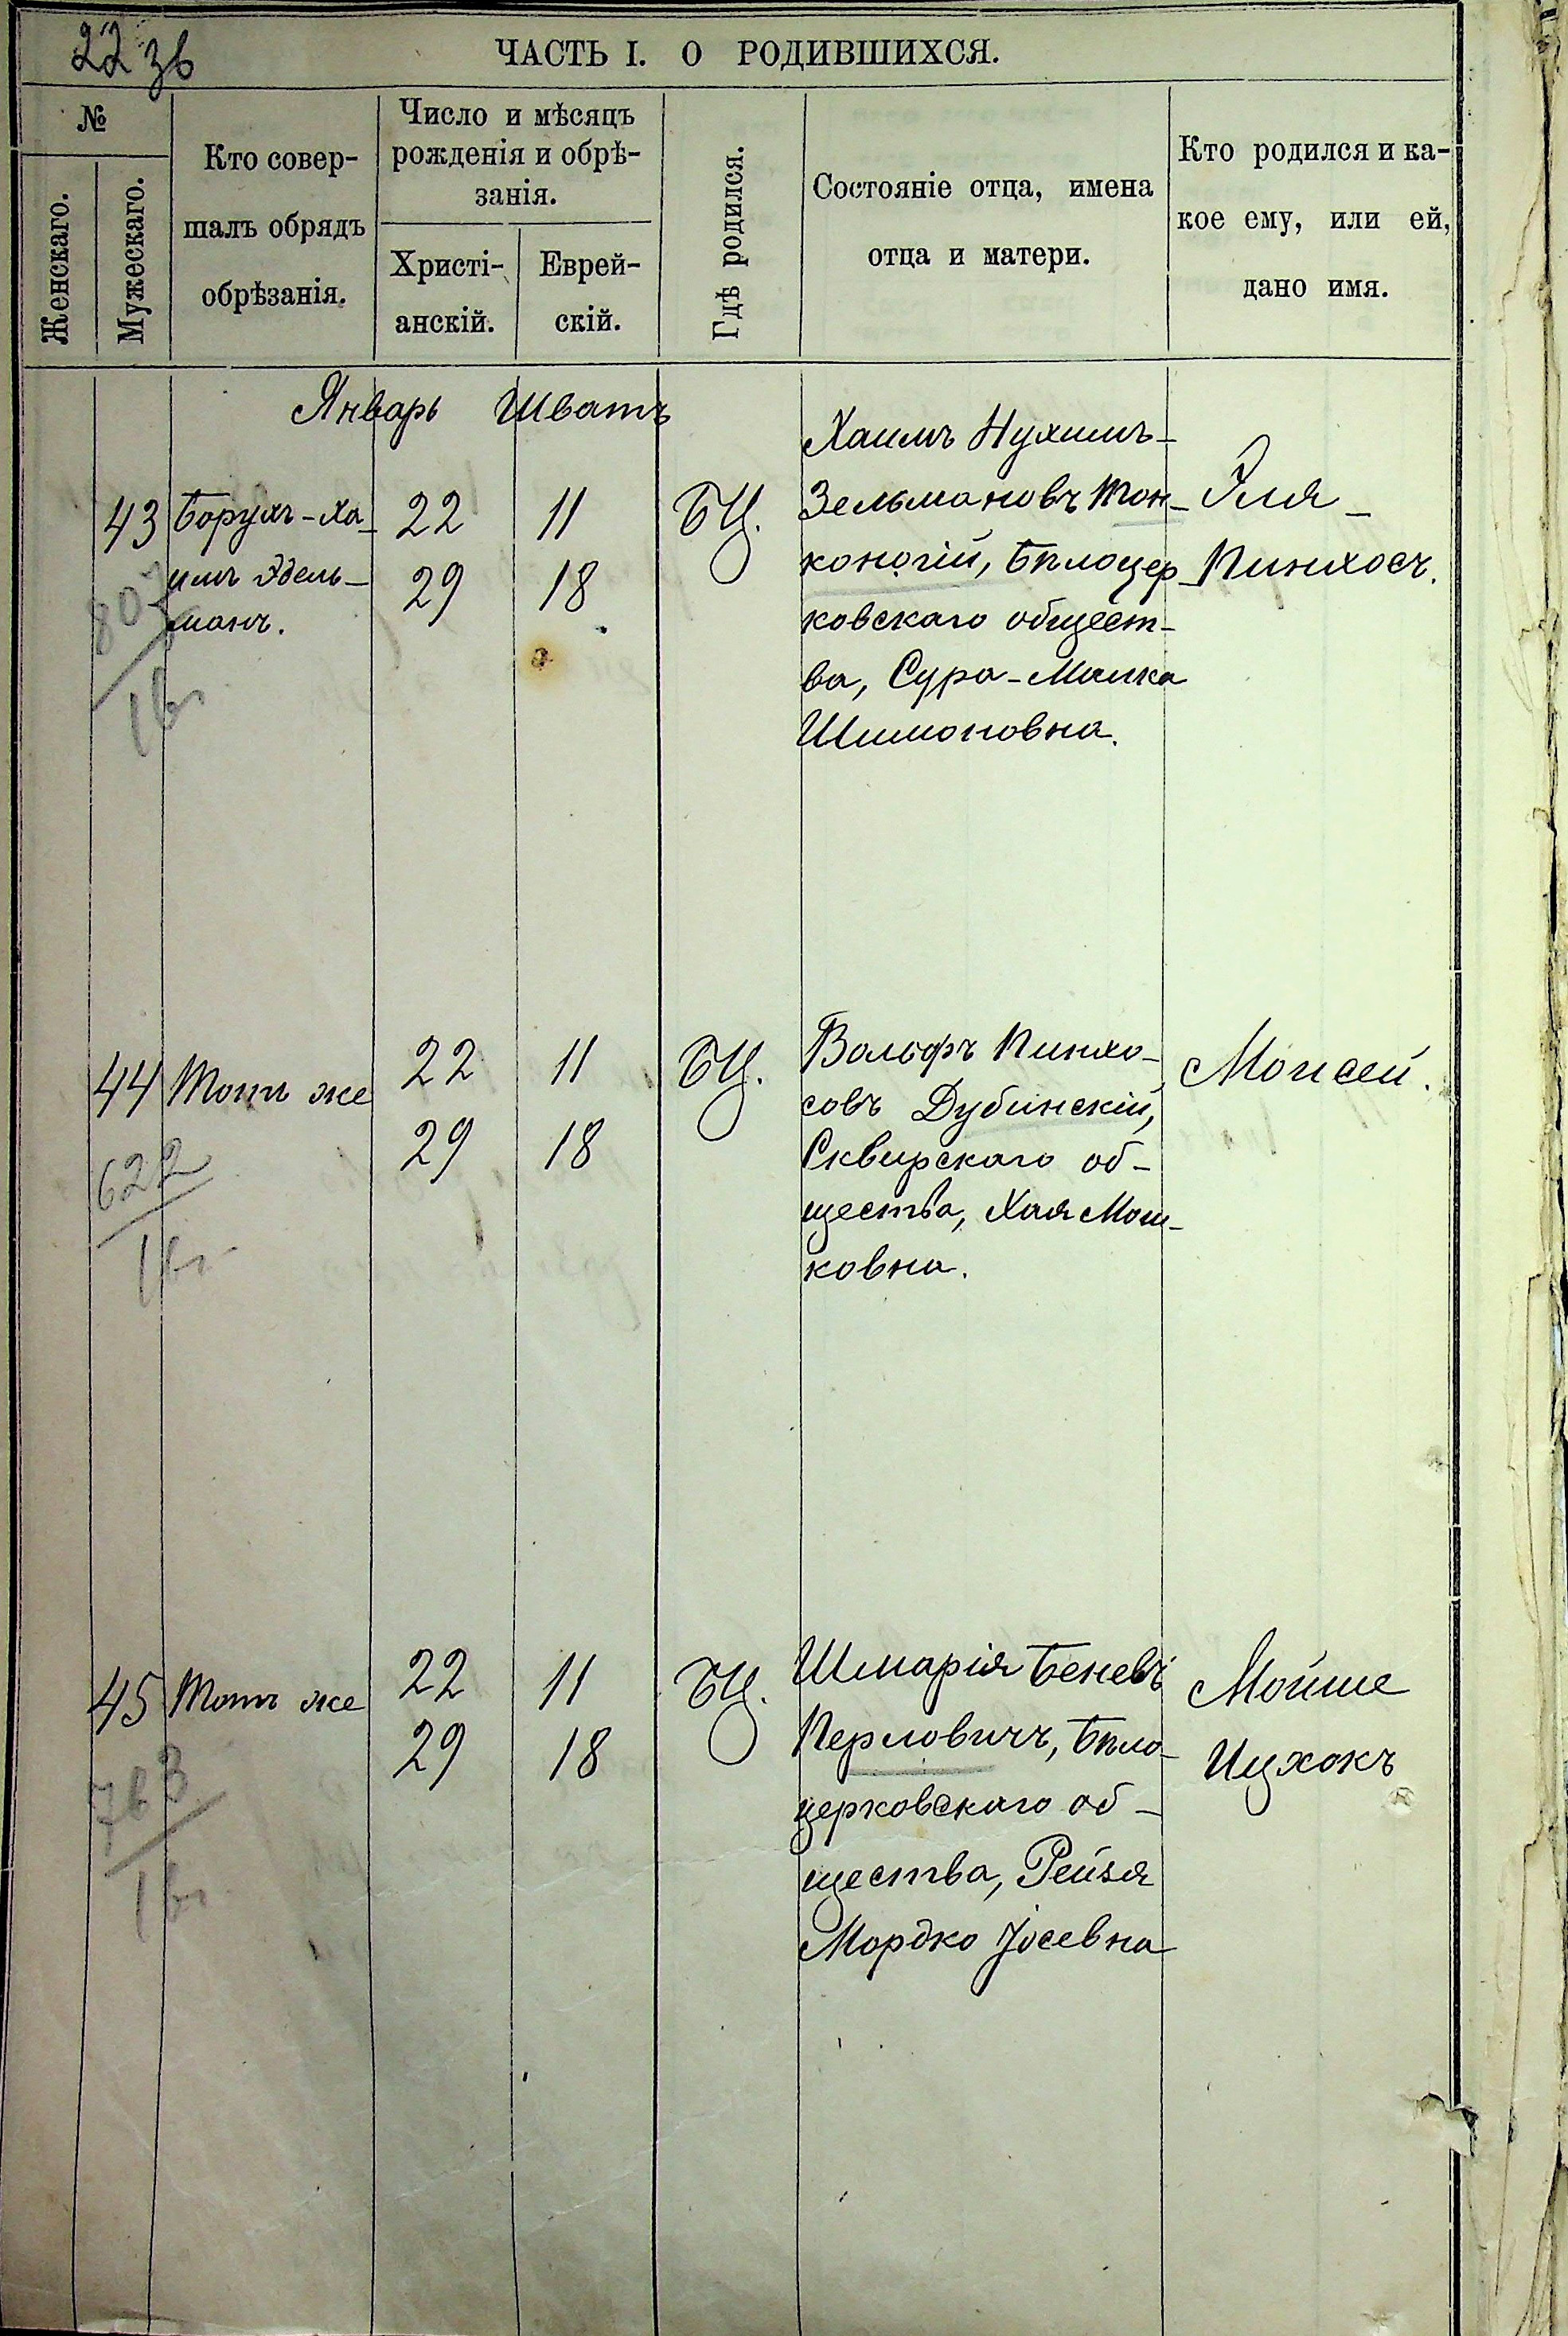 22 зв
ЧАСТЬ I. О РОДИВШИХСЯ.
№
Женскаго.
Мужескаго.
Кто совер-
шалъ обрядъ
обрѣзанія.
Число и мѣсяцъ
рожденія и обрѣ-
занія.
Христі-
анскій.
Еврей-
скій.
Гдѣ родился.
Состояніе отца, имена
отца и матери.
Кто родился и ка-
кое ему, или ей,
дано имя.
Январь Шватъ
43
Борухъ-Ха-
имъ Эдель-
манъ.
22 11
29 18
БЦ.
Хаимъ Нухимъ-
Зельмановъ Тон-
коногій, Бѣлоцер-
ковскаго общест-
ва, Сура-Малка
Шимоновна.
Эля-
Пинхосъ.
44
622
Тотъ же
22 11
29 18
БЦ.
Вольфъ Пинхо-
совъ Дубинскій,
Сквирскаго об-
щества, Хая Мош-
ковна.
Моисей.
45
763
Тотъ же
22 11
29 18
БЦ.
Шмарія Беневъ
Перловичъ, Бѣло-
церковскаго об-
щества, Рейзя
Мордко Іосевна
Мойше
Ицхокъ